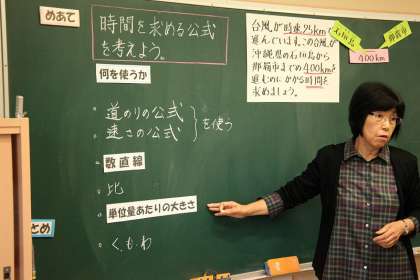 めあて
時間を求める公式
を考えよう。
何を使うか
・道のりの公式
・速さの公式
を使う
数直線
・比
単位量あたりの大きさ
・く、も、わ
とめ
台風が時速25kmで
進んでいます。この台風が
沖縄県の石垣島から
那覇市まで約400kmを
進むのにかかる時間を
求めましょう。
石垣島
那覇市
400km